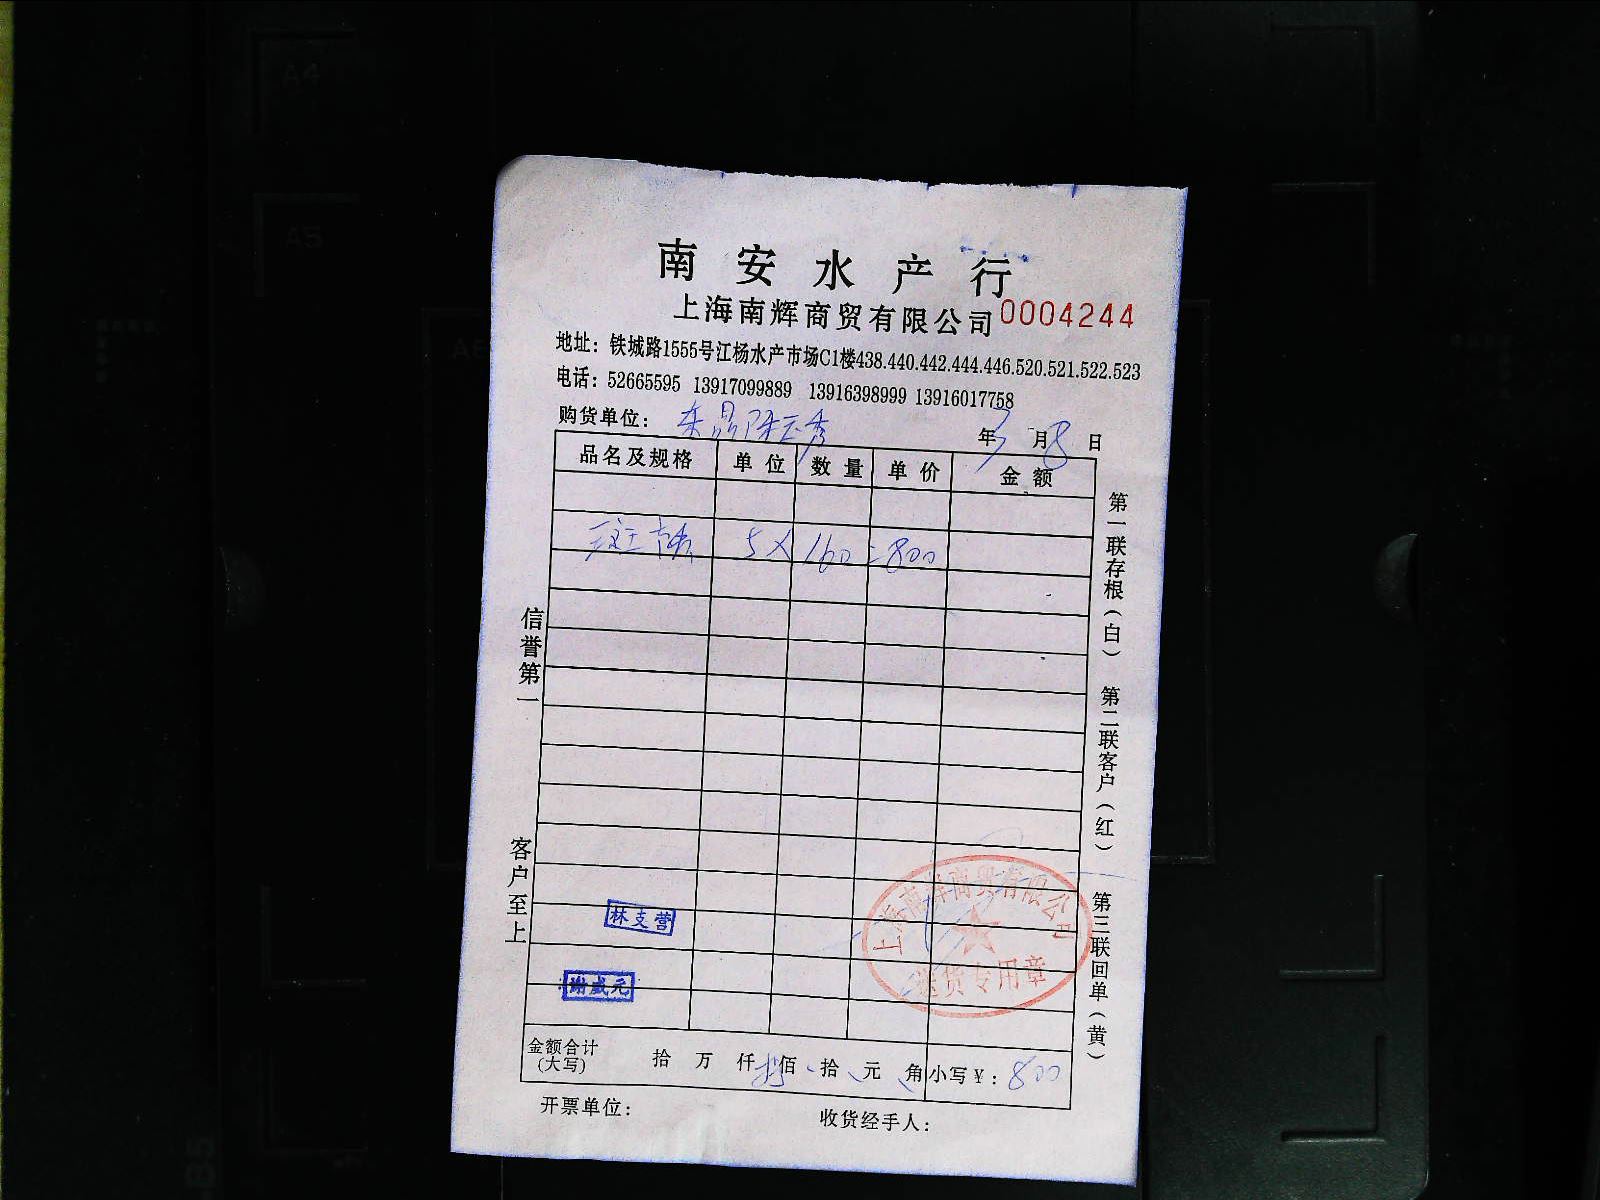 A4
A5
A6
B5
南安水产行
上海南辉商贸有限公司 0004244
地址：铁城路1555号江杨水产市场C1楼438.440.442.444.446.520.521.522.523
电话：52665595 13917099889 13916398999 13916017758
购货单位： 年7月8日
品名及规格 单位 数量 单价 金额
斑节 5×160=800
信誉第一
客户至上
第一联存根（白） 第二联客户（红） 第三联回单（黄）
林支营
谢威元
上海南辉商贸有限公司
送货专用章
金额合计（大写） 拾 万 仟 捌佰 拾 元 角 小写¥：800
开票单位： 收货经手人：